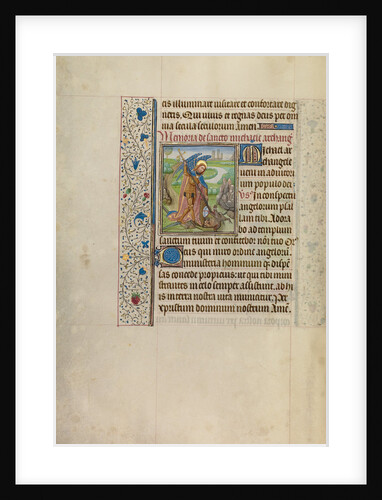 eis illuminare visitare et confortare dig
neris. Qui vivis et regnas deus per om
nia secula seculorum Amen
Memoria de sancto michaele archang
Michael ar
changele
veni in adiutori
um populo dei
In conspectu
angelorum psal
lam tibi. Adora
bo ad templum
sanctum tuum et confitebor nōi tuo Or
Deus qui miro ordine angelorū
ministeria hominum q̄ dispē
sas concede propicius: ut qui tibi mini
strantes in celo semper assistunt. ab hi
is in terra nostra vita muniatur. Per
xpristum dominum nostrum Ame̅.